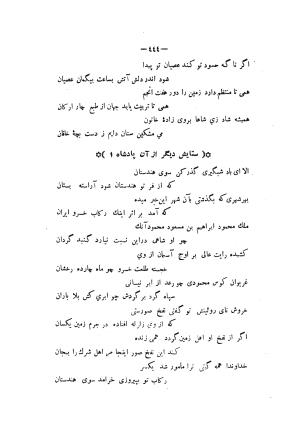 — ٤٤٤ —
اگر ناگه حسود تو کند عصیان تو پیدا
شود اندر دلش آتش بساعت بیگمان عصیان
همی تا منتظم دارد زمین را دور هفت انجم
همی تا تربیت یابد جهان از طبع چهار ارکان
همیشه شاد زی شاها بروی زادهٔ خاتون
می مشکین ستان دایم ز دست بچهٔ خاقان
*( ستایش دیگر از آن پادشاه ١ )*
الا ای باد شبگیری گذر کن سوی هندستان
که از فر تو هندستان شود آراسته بستان
بهر شهری که بگذشتی بآن شهر این خبر میده
که آمد بر اثر اینك رکاب خسرو ایران
ملك محمود ابراهیم بن مسعود محمود آنك
چو او شاهی در این نسبت نیارد گنبد گردان
کشیده رایت عالی بر اوج آسمان از وی
خجسته طلعت خسرو چو ماه چهارده رخشان
غریوان کوس محمودی چو رعد از ابر نیسانی
سپاه گرد بر گردش چو ابری کش بلا باران
خروش نای روئینش تو گفتی نفخ صورستی
که از وی زلزله افتاده در جرم زمین یکسان
اگر از نفخ او اهل زمین گردد همی زنده
کند این نفخ صور اینجا مر اهل شرك را بیجان
خداوندا همه گیتی ترا مأمور شد یکسر
رکاب تو بپیروزی خرامد سوی هندستان